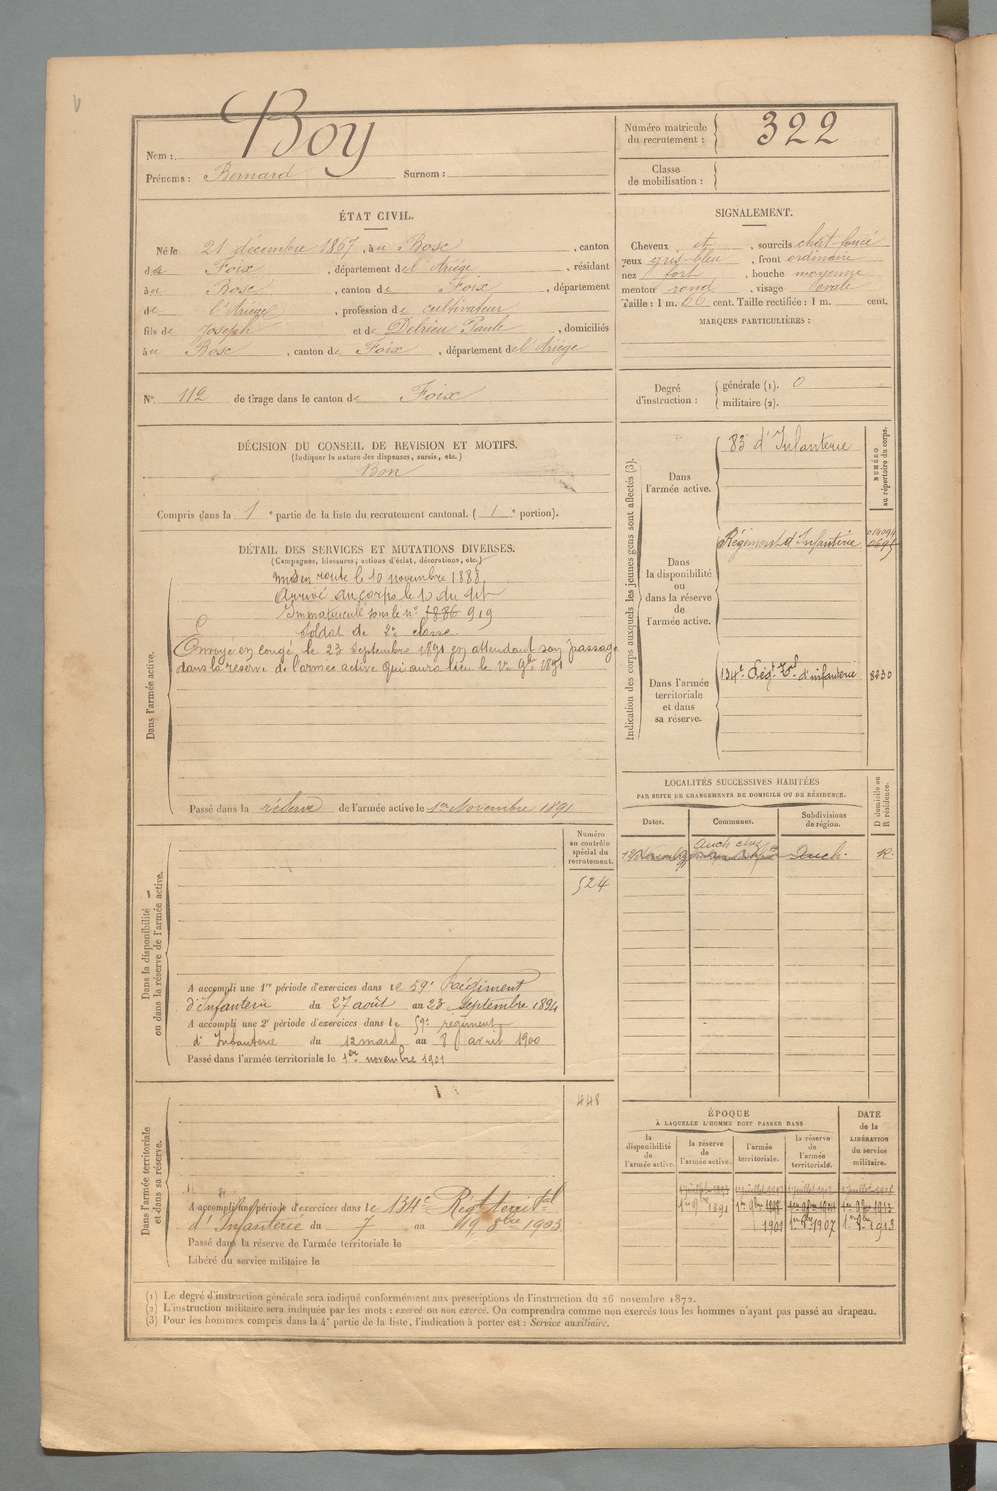 Boy
Nom :
Prénoms : Bernard Surnom :
Numéro matricule
du recrutement :
322
Classe
de mobilisation :
ÉTAT CIVIL.
Né le 21 décembre 1867, à u Bosc, canton
de Foix, département de l'Ariége, résidant
à u Bosc, canton de Foix, département
de l'Ariége, profession de cultivateur
fils de Joseph et de Delrieu Paule, domiciliés
à u Bosc, canton de Foix, département de l'Ariége
SIGNALEMENT.
Cheveux et, sourcils chât-foncé
yeux gris-bleu, front ordinaire
nez fort, bouche moyenne
menton rond, visage ovale
Taille : 1 m. 66 cent. Taille rectifiée : 1 m. cent.
MARQUES PARTICULIÈRES :
N° 112 de tirage dans le canton de Foix
Degré
d'instruction :
générale (1). 0
militaire (2).
DÉCISION DU CONSEIL DE REVISION ET MOTIFS.
(Indiquer la nature des dispenses, sursis, etc.)
Bon
Compris dans la 1e partie de la liste du recrutement cantonal. ( 1e portion).
DÉTAIL DES SERVICES ET MUTATIONS DIVERSES.
(Campagnes, blessures, actions d'éclat, décorations, etc.)
Dans l'armée active.
Mis en route le 10 novembre 1888
Arrivé au corps le 10 du dit
Immatriculé sous le n° 1886 919
Soldat de 2e classe
Envoyé en congé le 23 Septembre 1891 en attendant son passage
dans la réserve de l'armée active qui aura lieu le 1er 9bre 1891
Passé dans la réserve de l'armée active le 1er Novembre 1891
Indication des corps auxquels les jeunes gens sont affectés (3).
NUMÉRO
au répertoire du corps.
Dans
l'armée active.
83e d'Infanterie
Dans
la disponibilité
ou
dans la réserve
de
l'armée active.
Régiment d'Infanterie
Dans l'armée
territoriale
et dans
sa réserve.
134e Régt Tal d'infanterie 8230
LOCALITÉS SUCCESSIVES HABITÉES
PAR SUITE DE CHANGEMENTS DE DOMICILE OU DE RÉSIDENCE.
D domicile ou
R résidence.
Dates. Communes. Subdivisions
de région.
Auch chez
Auch. R.
Dans la disponibilité
ou dans la réserve de l'armée active.
Numéro
au contrôle
spécial du
recrutement.
524
A accompli une 1re période d'exercices dans le 59e Régiment
d'Infanterie du 27 août au 23 Septembre 1894
A accompli une 2e période d'exercices dans le 59e régiment
d'Infanterie du 12 mars au 8 avril 1900
Passé dans l'armée territoriale le 1er novembre 1901
Dans l'armée territoriale
et dans sa réserve.
448
A accompli une période d'exercices dans le 134e Régt territal
d'Infanterie du 7 au 19 8bre 1903
Passé dans la réserve de l'armée territoriale le
Libéré du service militaire le
ÉPOQUE
À LAQUELLE L'HOMME DOIT PASSER DANS
DATE
de la
LIBÉRATION
du service
militaire.
la
disponibilité
de
l'armée active.
la réserve
de
l'armée active.
l'armée
territoriale.
la réserve
de
l'armée
territoriale.
1er 9bre 1891
1901 1er 9bre 1907 1er 9bre 1913
(1) Le degré d'instruction générale sera indiqué conformément aux prescriptions de l'instruction du 26 novembre 1872.
(2) L'instruction militaire sera indiquée par les mots : exercé ou non exercé. On comprendra comme non exercés tous les hommes n'ayant pas passé au drapeau.
(3) Pour les hommes compris dans la 4e partie de la liste, l'indication à porter est : Service auxiliaire.